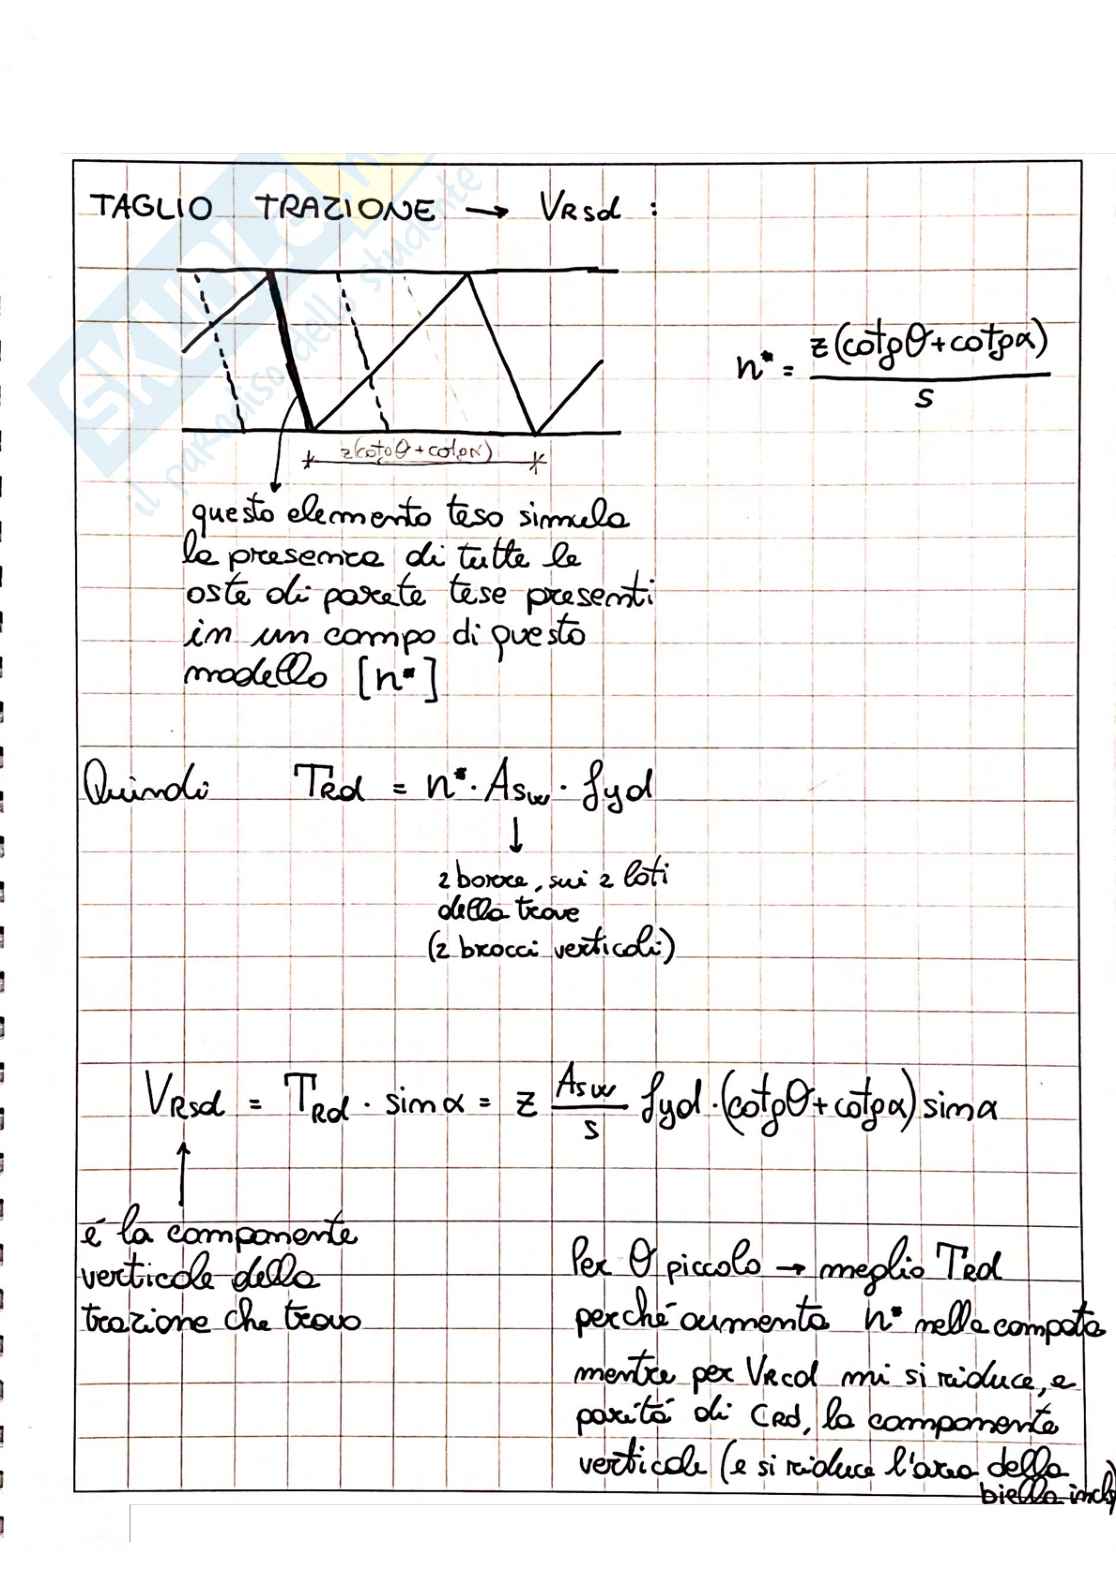 TAGLIO TRAZIONE → VRsd :
n* = z(cotgθ+cotgα) / s
z(cotgθ+cotgα)
questo elemento teso simula
la presenza di tutte le
aste di parete tese presenti
in un campo di questo
modello [n*]
Quindi TRd = n* · Asw · fyd
2 barre, sui 2 lati
della trave
(2 bracci verticali)
VRsd = TRd · sinα = z Asw/s fyd · (cotgθ+cotgα) sinα
é la componente
verticale della
trazione che trovo
Per θ piccolo → meglio TRd
perché aumenta n* nella campata
mentre per VRcd mi si riduce, a
parità di CRd, la componente
verticale (e si riduce l'area della
biella incl
il paradiso dello studente